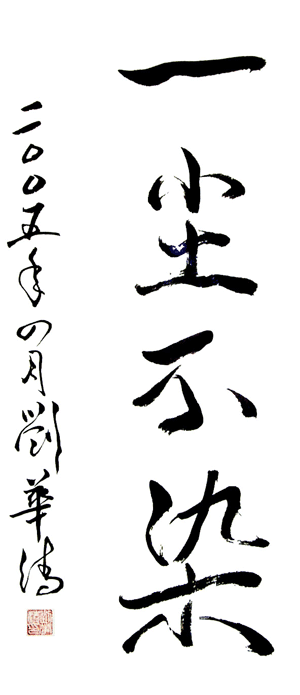 一尘不染
二〇〇五年四月劉華清